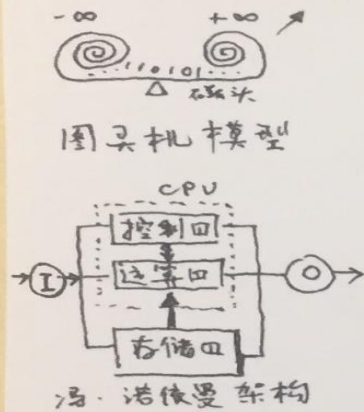 -∞ +∞
...110101...
磁头
图灵机模型
CPU
控制四
I 运算四 O
存储四
冯·诺依曼架构